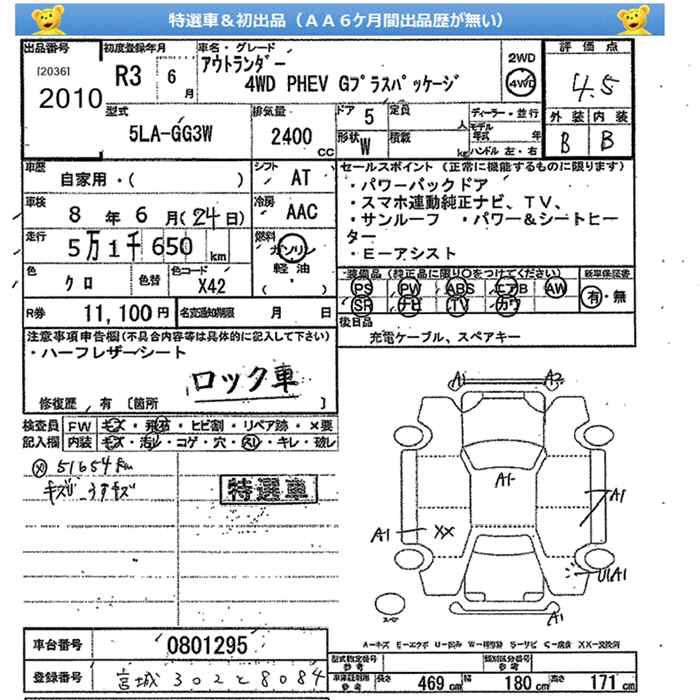 特選車＆初出品（ＡＡ６ケ月間出品歴が無い）
出品番号
[2036]
2010
初度登録年月
R3 6 月
車名・グレード
アウトランダー
4WD PHEV Gプラスパッケージ
2WD
4WD
評価点
4.5
外装 内装
B B
型式
5LA-GG3W
排気量
2400 CC
ドア 5
定員 人
形状 W
積載 kg
ディーラー・並行
モデル年式 年
ハンドル 左・右
車歴
自家用・( )
シフト AT
車検
8 年 6 月 (24日)
冷房 AAC
走行
5万1千650 km
燃料
ガソリン
軽油
( )
色 クロ
色替
色コード X42
R券 11,100円
名変通知期限 月 日
セールスポイント（正常に機能するものに限ります）
・パワーバックドア
・スマホ連動純正ナビ、ＴＶ、
・サンルーフ ・パワー＆シートヒー
ター
・Ｅーアシスト
装備品（純正品に限り○をつけてください）
PS PW ABS エアB AW
SR ナビ TV カワ
新車保証書
有・無
後日品
充電ケーブル、スペアキー
注意事項申告欄（不具合内容等は具体的に記入して下さい）
・ハーフレザーシート
ロック車
修復歴 有 [箇所 ]
検査員記入欄
FW キズ・飛石・ヒビ割・リペア跡・×要
内装 キズ・汚レ・コゲ・穴・スレ・キレ・破レ
51654km
キズ うすキズ
特選車
A1 A2
A1
A1
A1 XX
U1A1
スペア
A1
車台番号 0801295
登録番号 宮城 302 と 8084
A－キズ E－エクボ U－凹み W－補修跡 S－サビ C－腐食 XX－交換済
型式指定番号 参考
類別区分番号 参考
車庫証明用 参考
長さ 469 cm 幅 180 cm 高さ 171 cm